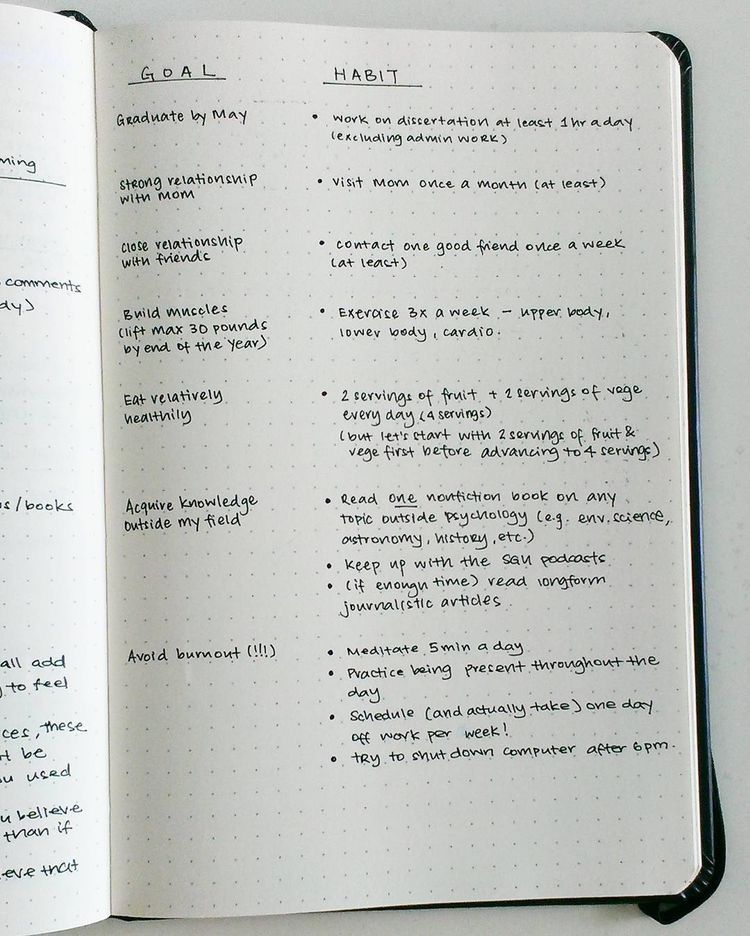 ning
comments
dy)
s/books
all add
to feel
ces, these
t be
u used
u believe
than if
eve that
GOAL HABIT
Graduate by May
• Work on dissertation at least 1 hr a day
(excluding admin work)
strong relationship
with Mom
• visit Mom once a month (at least)
close relationship
with friends
• contact one good friend once a week
(at least)
Build muscles
(lift max 30 pounds
by end of the year)
• Exercise 3x a week - upper body,
lower body, cardio.
Eat relatively
healthily
• 2 servings of fruit + 2 servings of vege
every day (4 servings)
(but let's start with 2 servings of fruit &
vege first before advancing to 4 servings)
Acquire knowledge
outside my field
• Read one nonfiction book on any
topic outside psychology (e.g. env. science,
astronomy, history, etc.)
• keep up with the SGU podcasts
• (if enough time) read longform
journalistic articles
Avoid burnout (!!!)
• Meditate 5 min a day
• Practice being present throughout the
day
• Schedule (and actually take) one day
off work per week!
• try to shut down computer after 6pm.